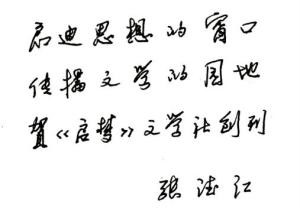 启迪思想的窗口
传播文学的园地
贺《启梦》文学社创刊
张德江